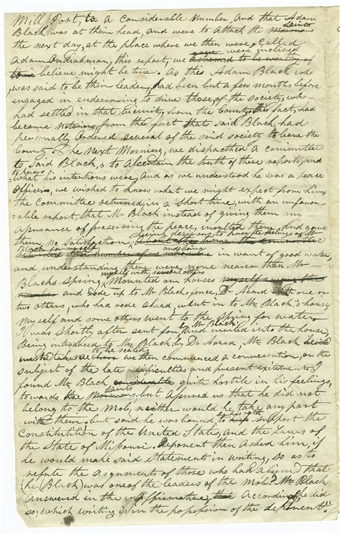 Mill Port, to a Considerable Number, and that Adam
Black was at their head, and were to attack the Saints
the next day, at the place where we then were, Called
Adam Ondiahman, this report, we
believe might be true. As this Adam Black who
was said to be their leader, had been but a few months before
engaged in endeavoring to drive those of the society, who
had settled in that vicinity, from the County, the fact, had
become Notorious, from the fact that said Black had
personally ordered several of the said society to leave the
County. The Next Morning, we dispatched a Committee
to said Black, to Ascertain the truth of these reports, and
to know what his intentions were, And as we understood he was a peace
Officer, we wished to know what we might expect from him
the Committee returned, in a short time, with an unfavor-
able report, that Mr Black instead of giving them any
assurance of preserving the peace, insulted them, and gave
them No satisfaction,
in want of good water,
and understanding there were none nearer than Mr
Blacks Spring, myself with several others Mounted our horses
and rode up to Mr Blacks fence, Dr Avard with one or
two others, who had rode ahead, went in to Mr Black's house
Myself and some others went to the Spring for water
I was shortly after sent for by Mr Black, and invited into the house,
Being introduced to Mr Black by Dr Avard, Mr Black
to be seated he then commenced a conversation, on the
subject of the late difficulties and present excitement. I
found Mr Black quite hostile in his feelings,
towards the Saints but assured us that he did not
belong to the Mob, neither would he take any part
with them, but said he was bound by his oath to support the
Constitution of the United States, and the laws of
the State of Missouri. Deponent then asked him, if
he would make said statement in writing, So as to
refute the Arguments of those who had affirmed that
he (Black) was one of the leaders of the Mob? Mr Black
answered in the affirmative, Accordingly he did
so, which writing is in the possession of the deponent